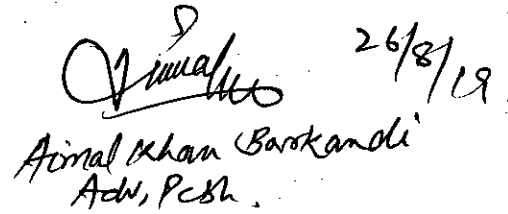 26/8/19
Aimal Khan Barkandi
Adv, Pesh.